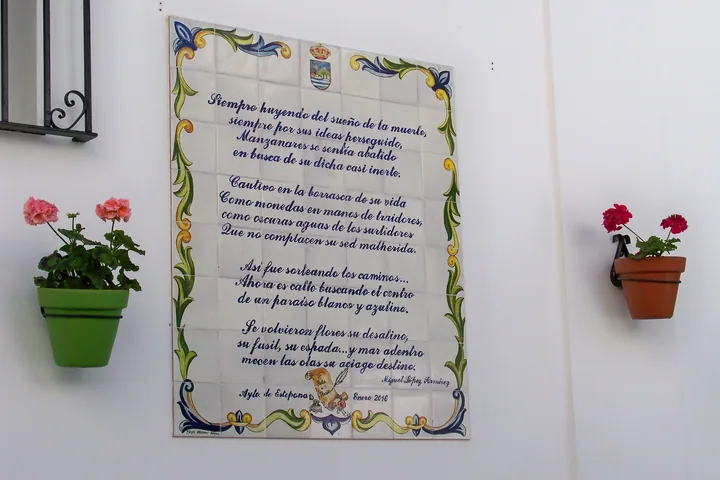 Siempre huyendo del sueño de la muerte,
siempre por sus ideas perseguido,
Manzanares se sentía abatido
en busca de su dicha casi inerte.
Cautivo en la borrasca de su vida
Como monedas en manos de traidores,
como oscuras aguas de los surtidores
Que no complacen su sed malherida.
Así fue sorteando los caminos...
Ahora es calle buscando el centro
de un paraíso blanco y azulino.
Se volvieron flores su desatino,
su fusil, su espada...y mar adentro
mecen las olas su aciago destino.
Miguel López Ramírez
Ayto. de Estepona Enero 2016